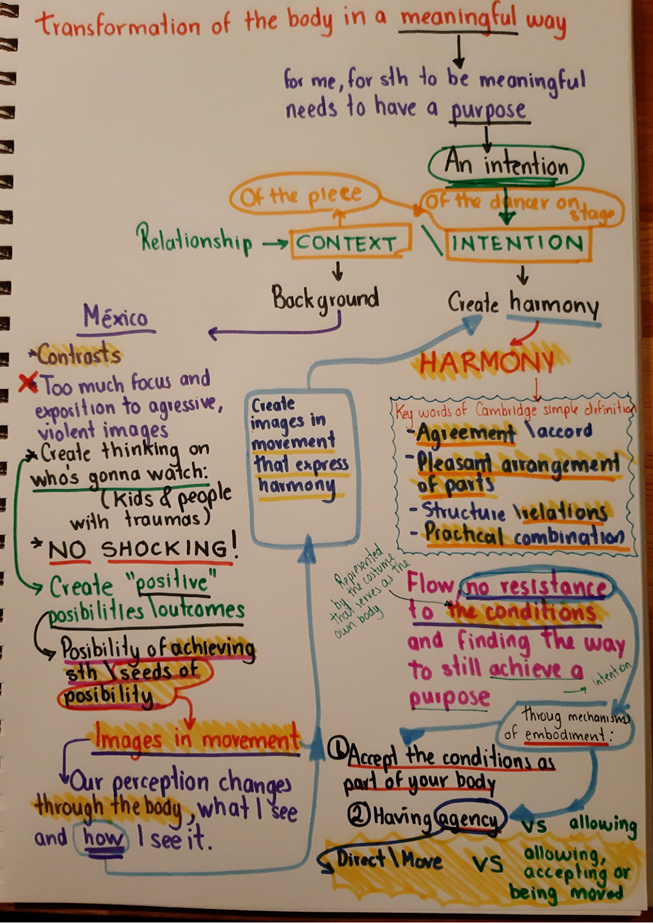 Transformation of the body in a meaningful way
for me, for sth to be meaningful
needs to have a purpose
An intention
Of the piece
Of the dancer on
stage
Relationship → CONTEXT \ INTENTION
Background
Create harmony
México
*Contrasts
X Too much focus and
exposition to agressive,
violent images
* Create thinking on
who's gonna watch:
(Kids & people
with traumas)
* NO SHOCKING!
Create "positive"
posibilities \outcomes
Posibility of achieving
sth \seeds of
posibility
Images in movement
Our perception changes
through the body, what I see
and how I see it.
Create
images in
movement
that express
harmony
HARMONY
Key words of Cambridge simple definition
-Agreement \accord
-Pleasant arrangement
of parts
-Structure \relations
-Practical combination
Represented
by the costume
that serves as the
own body
Flow, no resistance
to the conditions
and finding the way
to still achieve a
purpose
→ Intention
throug mechanisms
of embodiment:
① Accept the conditions as
part of your body
② Having agency vs allowing
Direct \ Move vs allowing,
accepting or
being moved